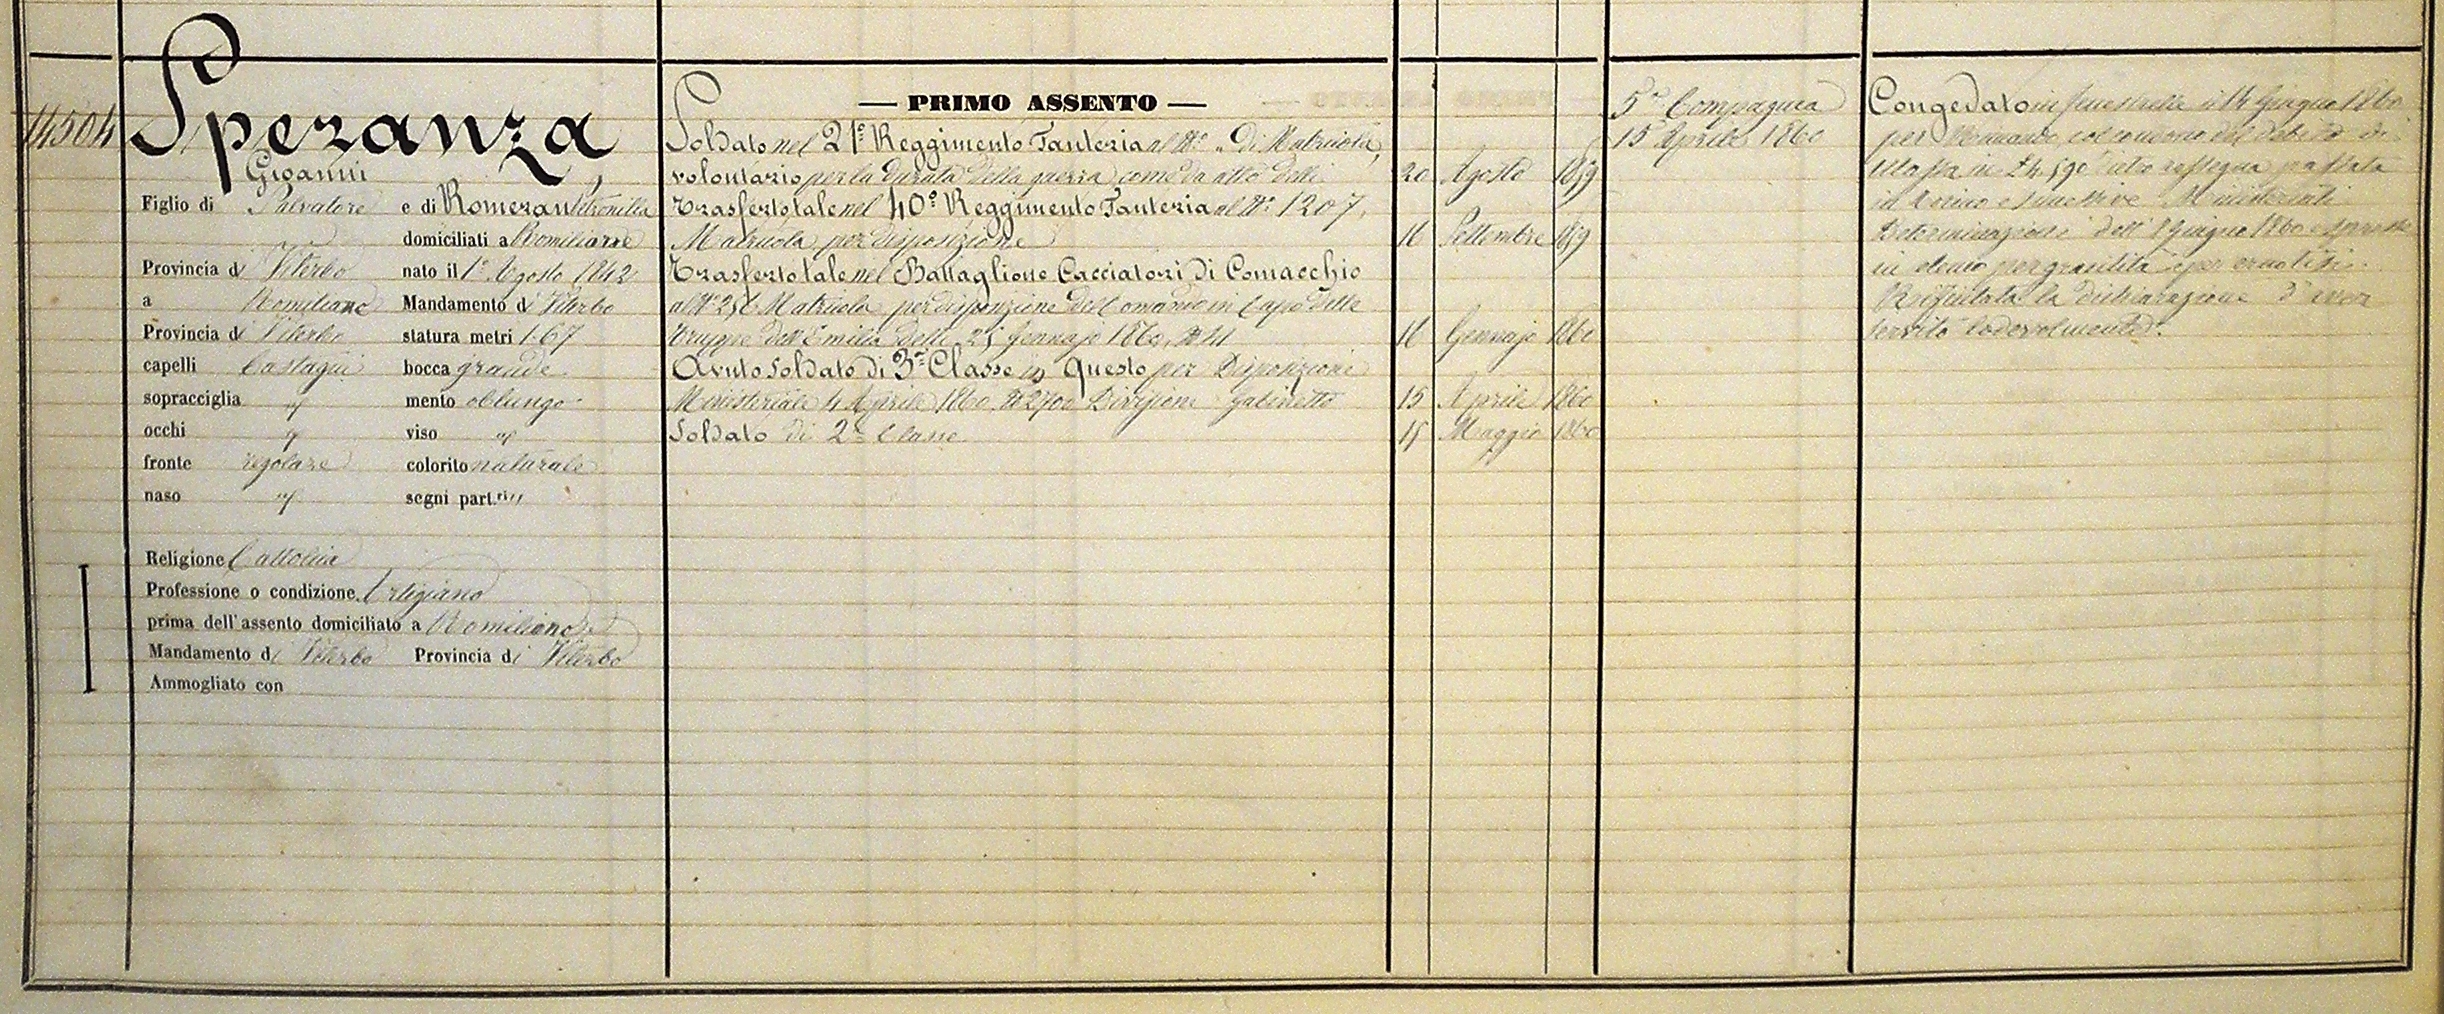 14504
Speranza
Gioanni
Figlio di Salvatore e di Romeran Petronilla
domiciliati a Romiliano
Provincia di Viterbo nato il 1º Agosto 1842
a Romiliano Mandamento di Viterbo
Provincia di Viterbo statura metri 1.67
capelli Castagni bocca grande
sopracciglia " mento oblungo
occhi " viso "
fronte regolare colorito naturale
naso " segni part.ri "
Religione Cattolica
Professione o condizione Artigiano
prima dell'assento domiciliato a Romiliano
Mandamento di Viterbo Provincia di Viterbo
Ammogliato con
— PRIMO ASSENTO —
Soldato nel 21º Reggimento Fanteria al Nº " di Matricola,
volontario per la durata della guerra come da atto delli 20 Agosto 1859
Trasferto tale nel 40º Reggimento Fanteria al Nº 1207,
Matricola per disposizione 16 Settembre 1859
Trasferto tale nel Battaglione Cacciatori di Comacchio
al Nº 256 Matricola per disposizione del Comando in Capo delle
Truppe dell'Emilia delli 25 Gennajo 1860, Nº 41 16 Gennajo 1860
Avuto soldato di 3ª Classe in Questo per Disposizione
Ministeriale 4 Aprile 1860 Nº 2700 Divisione Gabinetto 15 Aprile 1860
Soldato di 2ª Classe 15 Maggio 1860
5ª Compagnia
15 Aprile 1860
Congedato in Fenestrelle il 14 Giugno 1860
per col condono del debito di
Massa in £ 4,590 alla rassegna passata
in Torino e successive Ministeriali
Determinazioni dell' Giugno 1860 espresse
in elenco per gracilità e per
Rifiutata la dichiarazione d'aver
servito lodevolmente.